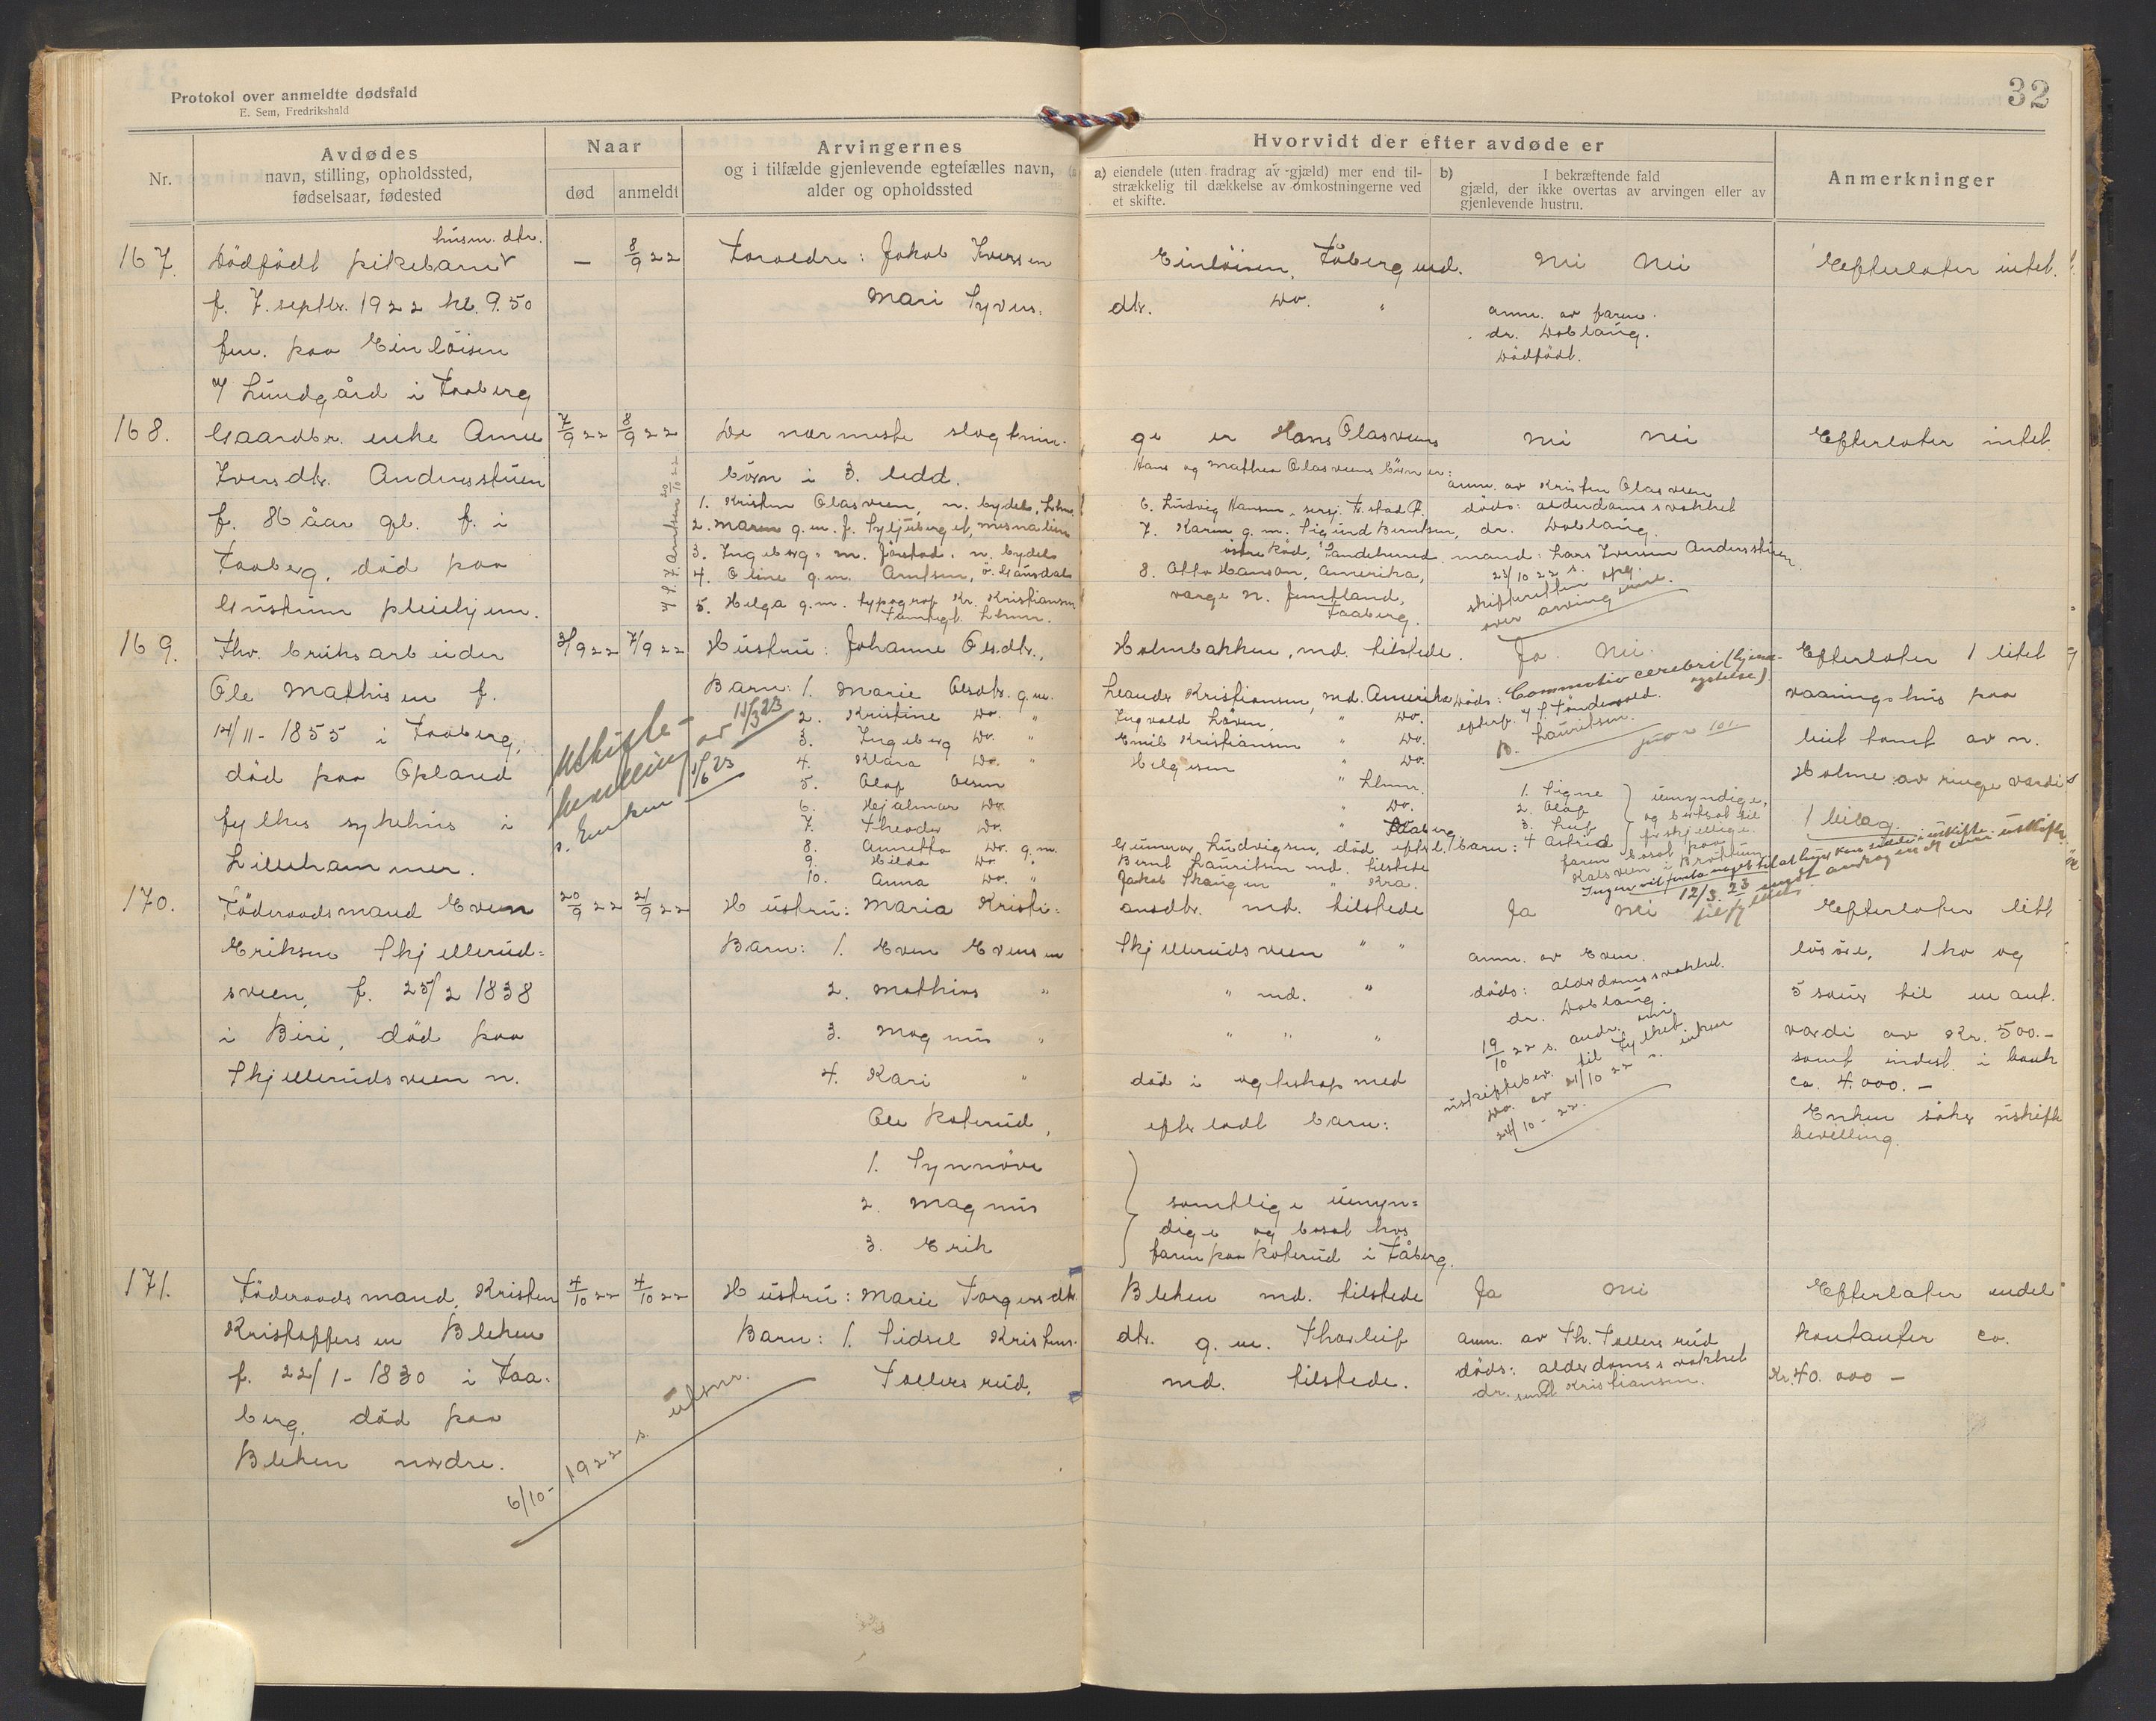 Protokol over anmeldte dødsfald
E. Sem, Fredrikshald
32
Nr.
Avdødes
navn, stilling, opholdssted,
fødselsaar, fødested
Naar
død
anmeldt
Arvingernes
og i tilfælde gjenlevende egtefælles navn,
alder og opholdssted
Hvorvidt der efter avdøde er
a) eiendele (uten fradrag av gjæld) mer end til-
strækkelig til dækkelse av omkostningerne ved
et skifte.
b) I bekræftende fald
gjæld, der ikke overtas av arvingen eller av
gjenlevende hustru.
Anmerkninger
167.
husm. dtr.
Dödfödt pikebarn
f. 7. septbr. 1922 kl. 9.50
fm. paa Einlöisen
Lundgård i Faaberg
—
8/9 22
Foraeldre: Jakob Iversen
Mari Syvers.
Einlöisen, Fåberg md.
dtr. Do. "
nei nei
anm. av faren.
dr. Doblaug.
Dödfödt.
Efterlater intet.
168.
Gaardbr. enke Anne
Iversdtr. Andersstuen
f. 86 åar gl. f. i
Faaberg, död paa
Gustum pleiehjem.
7/9 22
8/9 22
De naermeste slagtnin-
börn i 3. ledd.
1. Kristen Olasveen, n. bydel, Lhmr.
2. Maren g. m. J.
3. Ingeberg. m. Jörstad. n. bydel
4. Oline g. m. Arntsen, ö. Gausdal
5. Helga g. m. typograf Kr. Kristiansen
Lhmr.
ge er Hans Olasveens
Hans og Mathea Olasveens börn er:
6. Ludvig Hansen, sersj.
7. Karen g. m. Sigurd Berntsen,
8. Otto Hanson, Amerika,
verge n. Jemtland,
Faaberg.
nei nei
anm. av Kristen Olasveen
döds: alderdomssvakhet
dr. Doblaug.
mand: Lars Iversen Andersstuen
23/10 22 s.
skifteretten opg.
over arvingerne.
Efterlater intet.
169.
Fhv. bruksarbeider
Ole Mathisen f.
14/11 - 1855 i Faaberg,
död paa Opland
fylkes sykehus i
Lillehammer.
3/9 22
7/9 22
Uskifte-
bevilling av 14/3 23
s. Enken 1/6 23
Hustru: Johanne Olsdtr.,
Barn: 1. Marie Olsdtr. g. m.
2. Kristine Do. "
3. Ingeberg Do. "
4. Klara Do. "
5. Olaf Olsen
6. Hjalmar Do.
7. Theodor Do.
8. Annette Do. g. m.
9. Hilda Do. "
10. Anna Do. "
Holmbakken, md. tilstede.
Leander Kristiansen, md. Amerika
Ingvald Löven, " Do.
Emil Kristiansen " Do.
Helgesen " Do.
" Lhmr.
" Do.
" Faaberg.
Gunnar Ludvigsen, död efterl. barn:
Bernt Lauritsen md. tilstede
Jakob Skaugen " Kra.
Ja. nei.
döds: Commotio cerebri (hjerne-
rystelse)
B. Lauritsen.
1. Signe
2. Olaf
3. Leif
4 Astrid
umyndige,
og bortsat til
forskjellige.
faren bosat paa
Kalsveen i Bröttum
12/3. 23
Efterlater 1 litet
vaaningshus paa
leiet tomt av n.
Holme av ringe værdi
1 bilag.
170.
Föderaadsmand Even
Eriksen Skjellerud-
sveen, f. 25/2 1838
i Biri, död paa
Skjellerudsveen n.
20/9 22
21/9 22
Hustru: Maria Kristi-
Barn: 1. Even Evensen
2. Mathias "
3. Magnus "
4. Kari "
Ole Koterud,
1. Synnöve
2. Magnus
3. Erik
ansdtr. md. tilstede
Skjellerudsveen " "
" md. "
" " "
död i egteskap med
efterladt barn:
samtlige umyn-
dige og bosat hos
faren paa Koterud i Fåberg.
Ja nei
anm. av Even.
döds: alderdomssvakhet.
dr. Doblaug.
19/10 22 s. andr. om
uskiftebev. til fylket.
Do. av 21/10 22 s. enken
24/10 - 22.
Efterlater litt
lösöre, 1 ko og
5 sauer til en ant.
værdi av Kr. 500.-
samt indest. i bank
ca. 4.000.-
Enken söker uskifte
bevilling.
171.
Föderaadsmand Kristen
Kristoffersen Bleken
f. 22/1 - 1830 i Faa-
berg, död paa
Bleken nordre.
4/10 22
4/10 22
6/10 - 1922 s.
Hustru: Marie Torgersdtr.
Barn: 1. Sidsel Kristens-
Tollersrud.
Bleken md. tilstede
dtr. g. m. Thorleif
md. tilstede.
Ja nei
anm. av Th. Tollersrud
döds: alderdomssvakhet
dr. Kristiansen.
Efterlater endel
kontanter ca.
Kr. 40.000 -